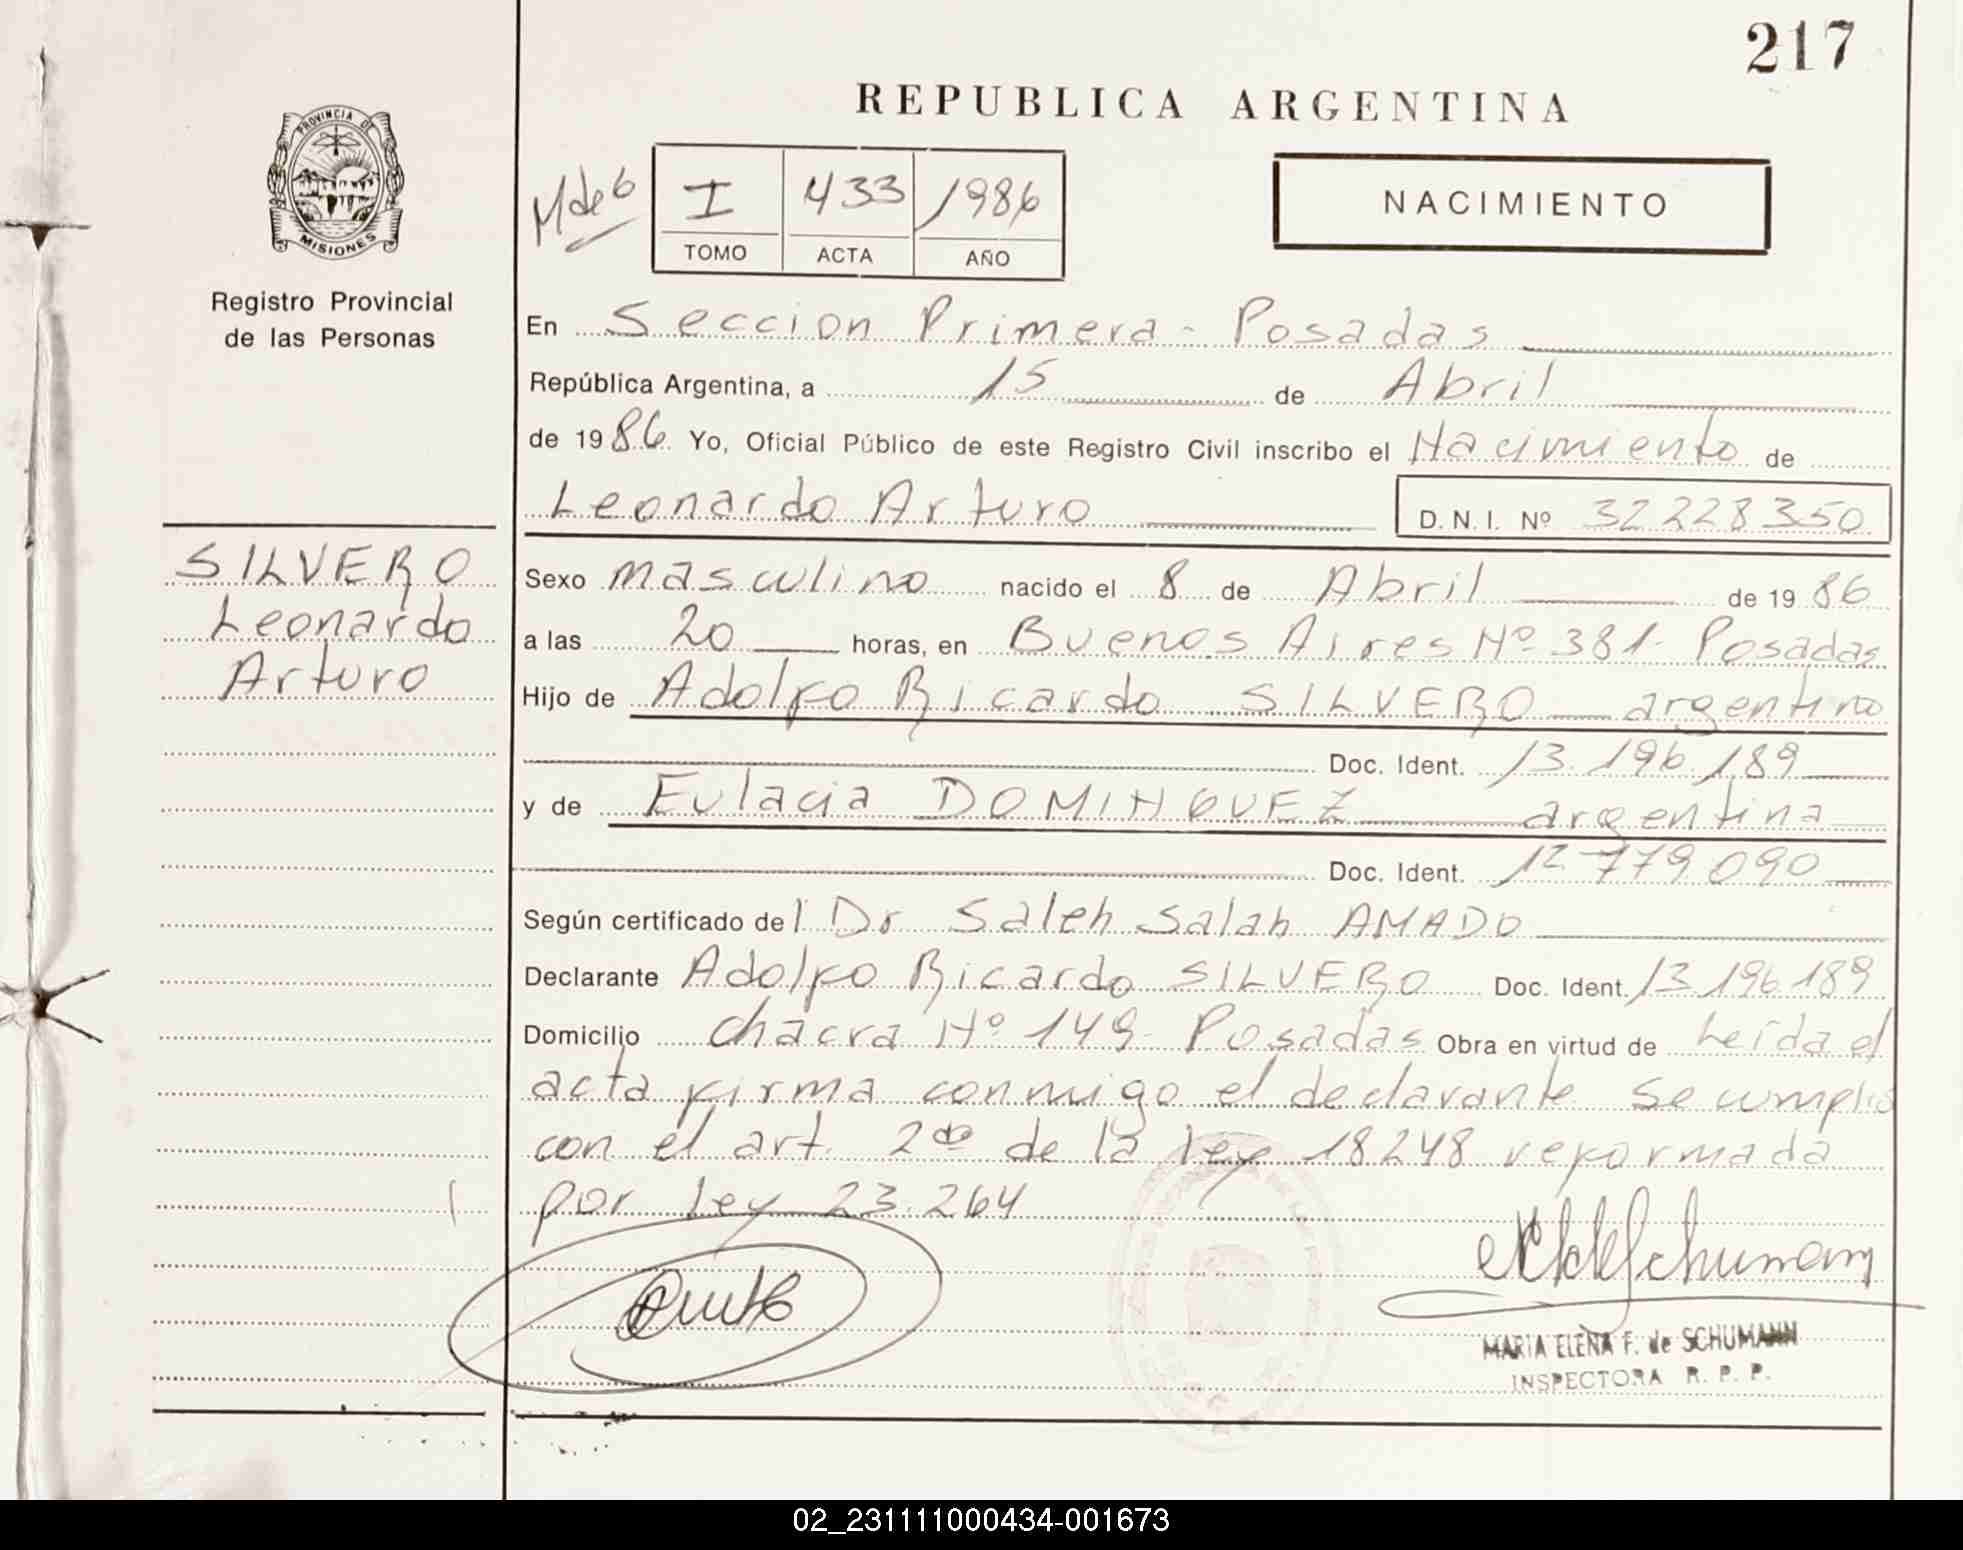 217
REPUBLICA ARGENTINA
PROVINCIA DE
MISIONES
Registro Provincial
de las Personas
M de 6
I 433 1986
TOMO ACTA AÑO
NACIMIENTO
En Seccion Primera - Posadas
República Argentina, a 15 de Abril
de 1986 Yo, Oficial Público de este Registro Civil inscribo el Nacimiento de
Leonardo Arturo D.N.I. Nº 32228350
SILVERO
Leonardo
Arturo
Sexo masculino nacido el 8 de Abril de 1986
a las 20 horas, en Buenos Aires Nº 381- Posadas
Hijo de Adolfo Ricardo SILVERO argentino
Doc. Ident. 13.196.189
y de Eulacia DOMINGUEZ argentina
Doc. Ident. 12.779.090
Según certificado del Dr Saleh Salah AMADO
Declarante Adolfo Ricardo SILVERO Doc. Ident. 13.196.189
Domicilio chacra Nº 149- Posadas Obra en virtud de Leída el
acta firma conmigo el declarante se cumplio
con el art. 2do de la ley 18248 reformada
por ley 23.264
MARIA ELENA F. de SCHUMANN
INSPECTORA R. P. P.
02_231111000434-001673